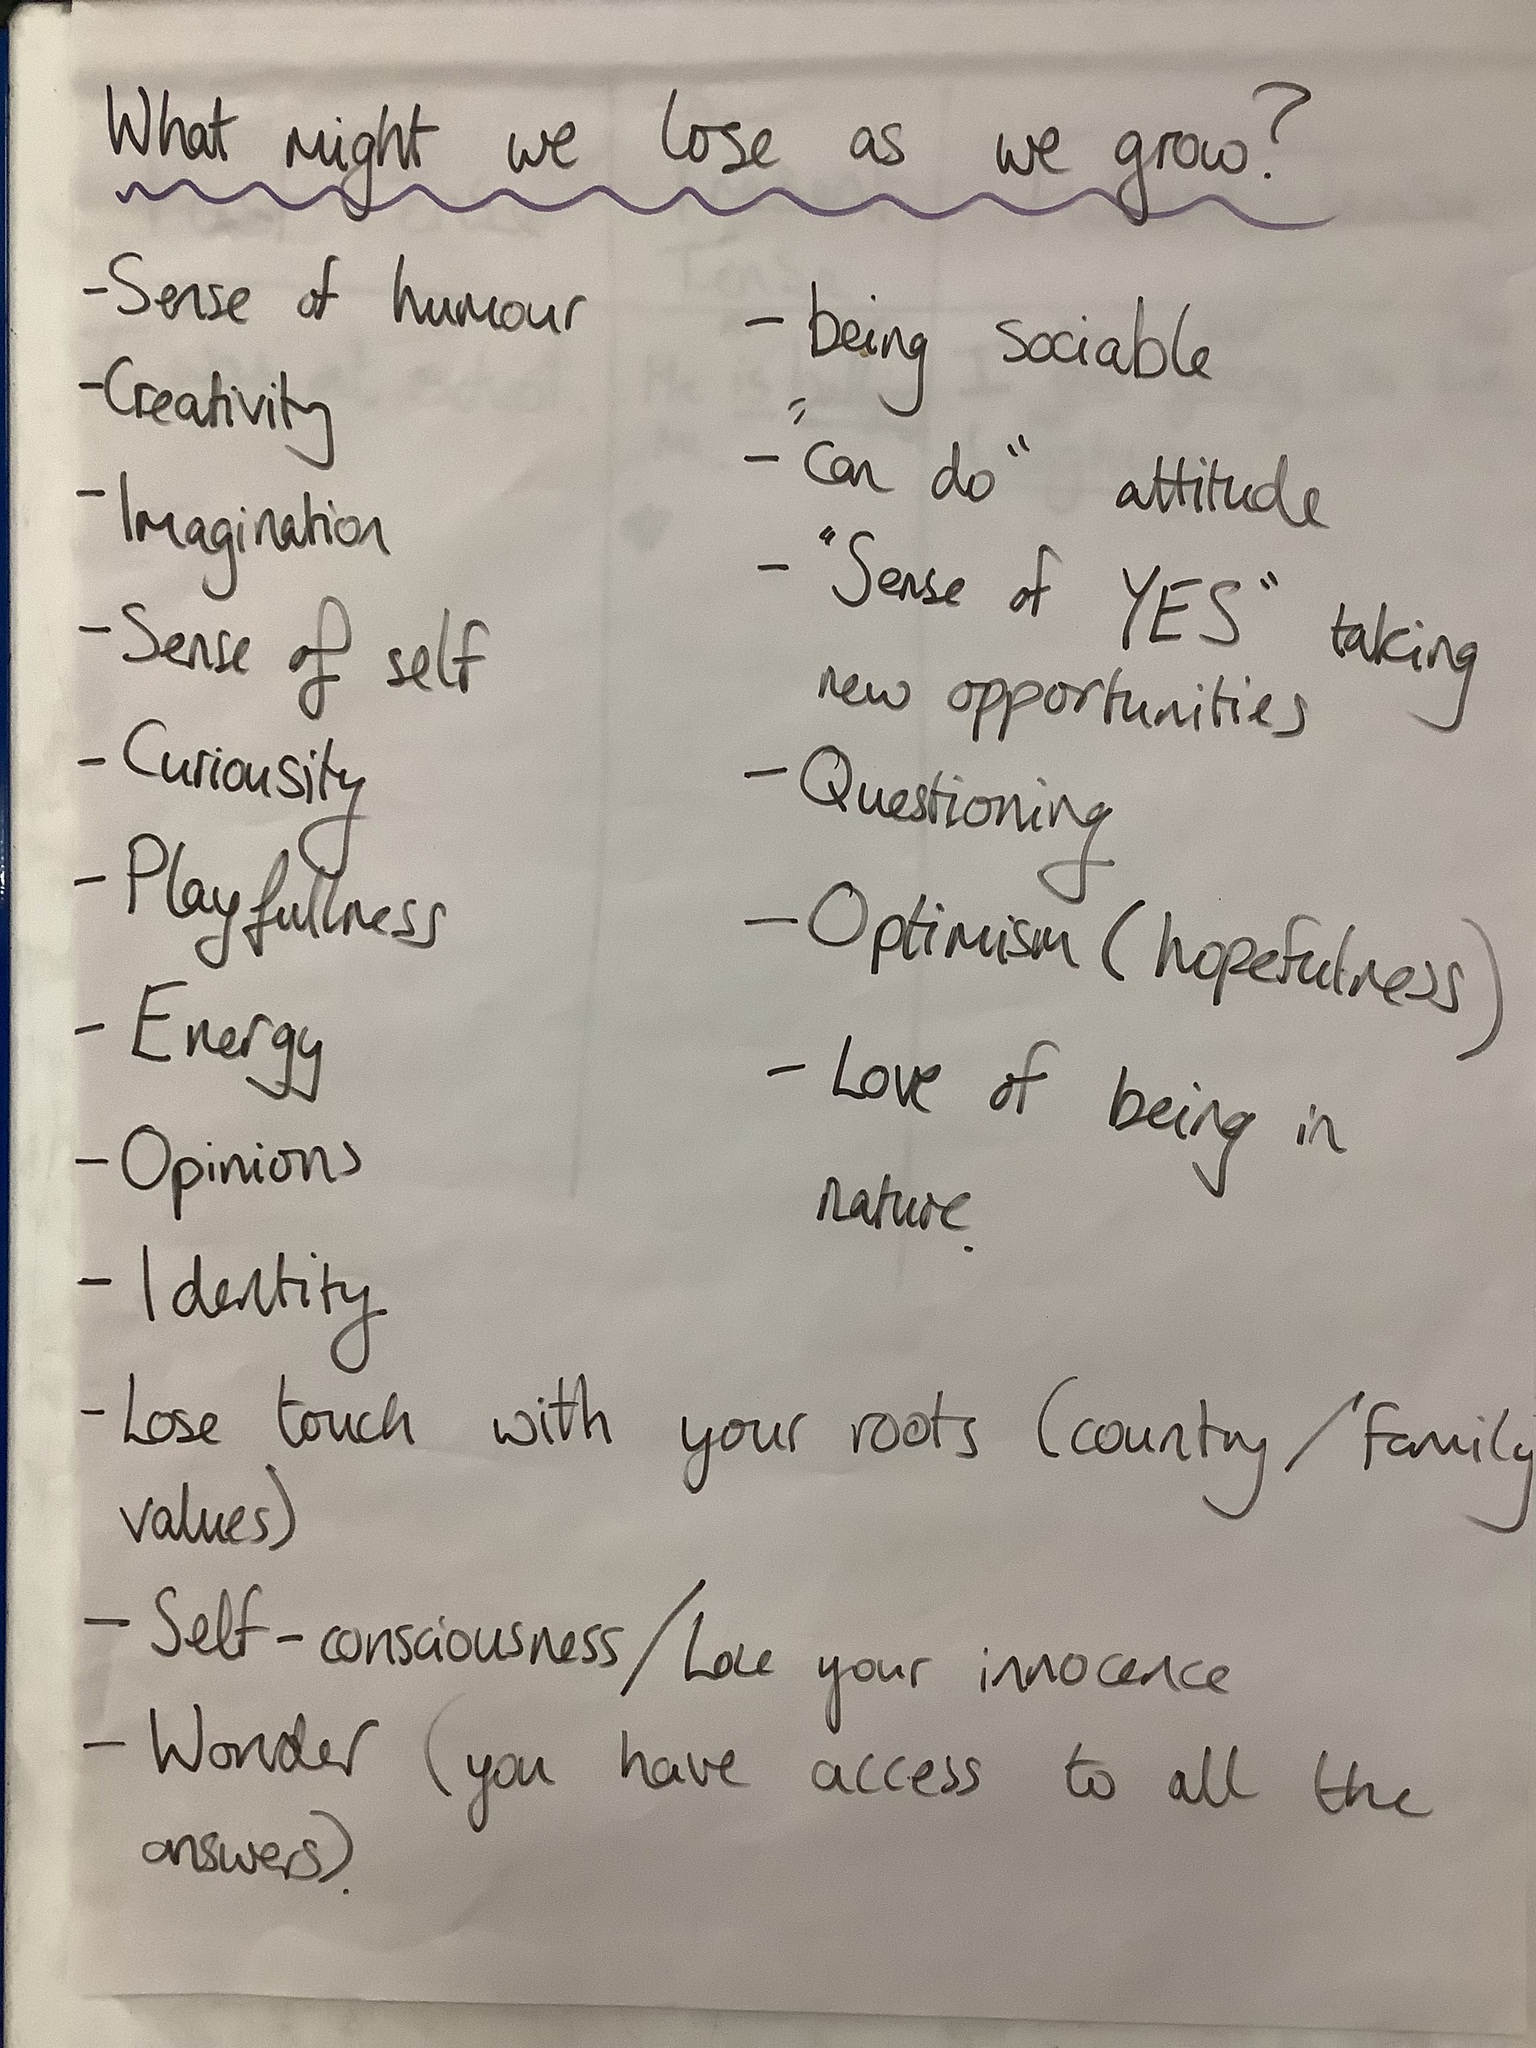 What might we lose as we grow?
- Sense of humour
- Creativity
- Imagination
- Sense of self
- Curiousity
- Playfullness
- Energy
- Opinions
- Identity
- being sociable
- "can do" attitude
- "Sense of YES" taking
new opportunities
- Questioning
- Optimism (hopefulness)
- Love of being in
nature.
- Lose touch with your roots (country/family
values)
- Self-consciousness/Lose your innocence
- Wonder (you have access to all the
answers).